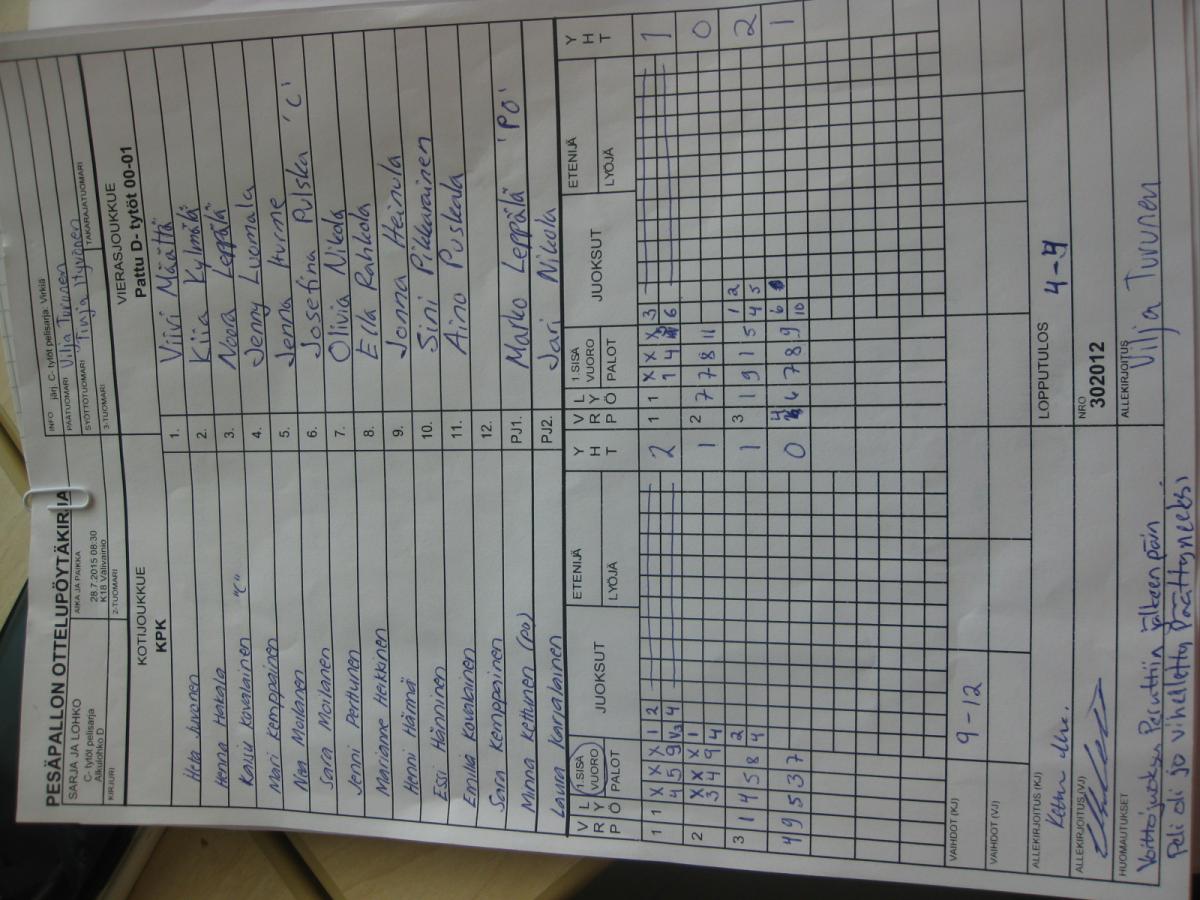 PESÄPALLON OTTELUPÖYTÄKIRJA
SARJA JA LOHKO
C- tytöt pelisarja
Alkulohko D
AIKA JA PAIKKA
28.7.2015 08:30
K18 Välivainio
INFO järj. C- tytöt pelisarja: Virkiä
PÄÄTUOMARI Vilja Turunen
SYÖTTÖTUOMARI Tinja Hyvönen
KIRJURI
2-TUOMARI
3-TUOMARI
TAKARAJATUOMARI
KOTIJOUKKUE
KPK
VIERASJOUKKUE
Pattu D- tytöt 00-01
Hilta Juvonen 1. Viivi Määttä
Henna Hakala 2. Kiia Kylmälä
Kaisu Kovalainen "C" 3. Neea Leppälä
Mari Kemppainen 4. Jenny Luomala
Niina Moilanen 5. Jenna Hurme
Sara Moilanen 6. Josefina Pulska 'C'
Jenni Perttunen 7. Olivia Nikola
Marianne Heikkinen 8. Ella Rahkola
Henni Härmä 9. Jonna Heinula
Essi Hänninen 10. Sini Pikkarainen
Emilia Kovalainen 11. Aino Puskala
Sara Kemppainen 12.
Minna Kettunen (PO) PJ1. Marko Leppälä 'PO'
Laura Karjalainen PJ2. Jari Nikola
V R P L Y Ö 1.SISÄ VUORO PALOT JUOKSUT ETENIJÄ LYÖJÄ Y H T V R P L Y Ö 1.SISÄ VUORO PALOT JUOKSUT ETENIJÄ LYÖJÄ Y H T
1 1 X X X 1 2 2 1 1 X X X 3 1
4 5 9 4 1 4 6
2 X X X 1 1 2 7 7 8 11 0
3 4 9 4
3 1 4 5 8 2 4 1 3 1 9 1 5 1 2 4 5 2
4 9 5 3 7 0 4 6 7 8 9 6 10 1
VAIHDOT (KJ) 9-12
VAIHDOT (VJ)
ALLEKIRJOITUS (KJ)
LOPPUTULOS 4-4
ALLEKIRJOITUS (VJ)
NRO
302012
HUOMAUTUKSET
Voittojuoksu peruttiin jälkeenpäin.
Peli oli jo vihelletty päättyneeksi
ALLEKIRJOITUS
Vilja Turunen